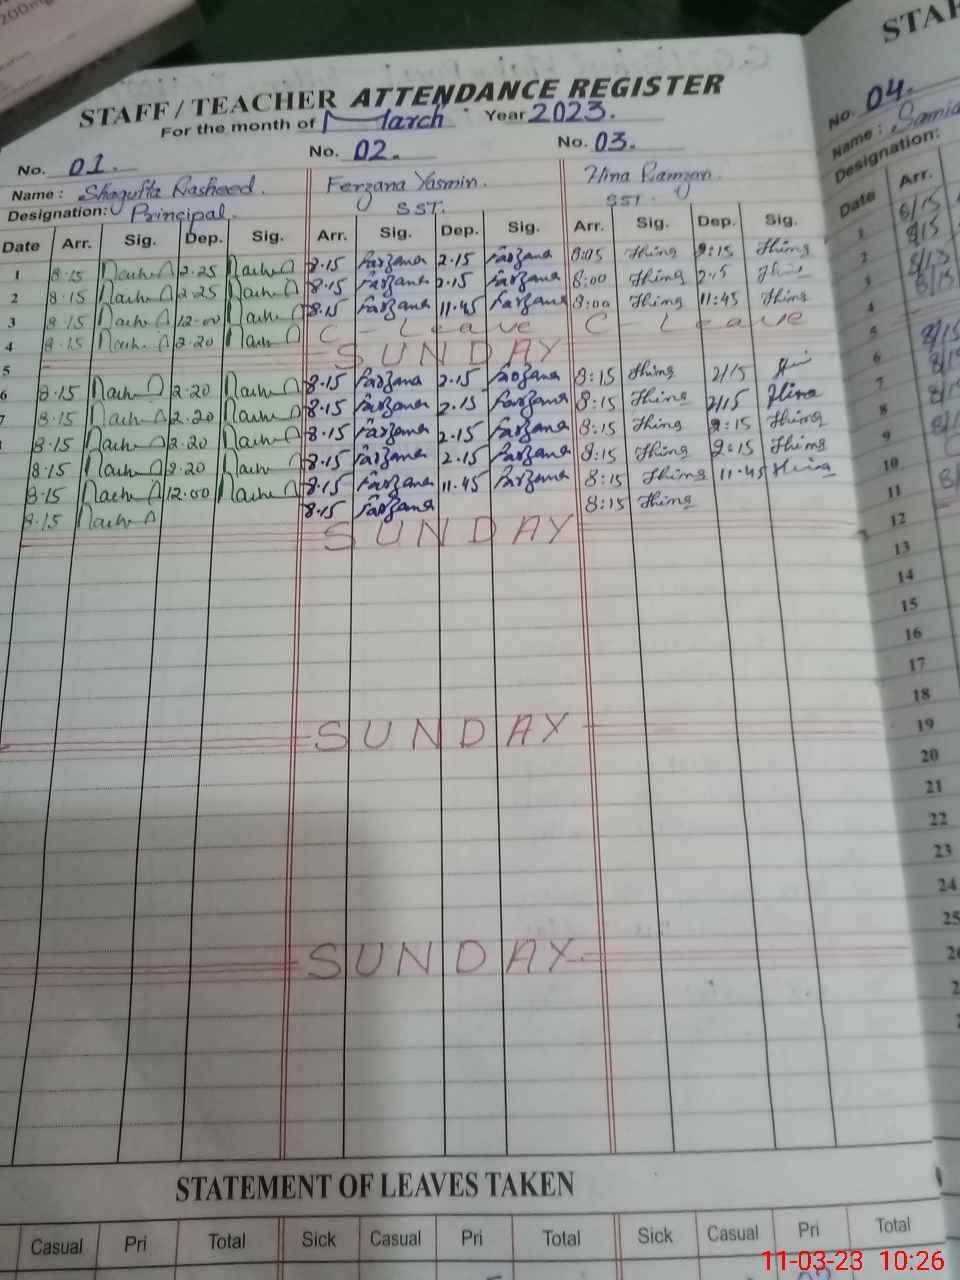 STAFF / TEACHER ATTENDANCE REGISTER
For the month of March Year 2023.
No. 01. No. 02. No. 03.
Name : Shagufta Rasheed. Ferzana Yasmin. Hina Ramzan.
Designation: Principal. SST. SST.
Date Arr. Sig. Dep. Sig. Arr. Sig. Dep. Sig. Arr. Sig. Dep. Sig.
1 8.15 2.25 8.15 Farzana 2.15 Farzana 8:05 2:15
2 8.15 2.25 8.15 Farzana 2.15 Farzana 8:00 2.15
3 8.15 12.00 8.15 Farzana 11.45 Farzana 8:00 11:45
4 8.15 2.20 C - Leave C - Leave
5 SUNDAY
6 8.15 2.20 8.15 Farzana 2.15 Farzana 8:15 2/15
7 8.15 2.20 8.15 Farzana 2.15 Farzana 8:15 2/15 Hina
8.15 2.20 8.15 Farzana 2.15 Farzana 8:15 2:15
8.15 2.20 8.15 Farzana 2.15 Farzana 8:15 2:15
8.15 12.00 8.15 Farzana 11.45 Farzana 8:15 11.45
8.15 8.15 Farzana 8:15
SUNDAY
SUNDAY
SUNDAY
STATEMENT OF LEAVES TAKEN
Casual Pri Total Sick Casual Pri Total Sick Casual Pri Total
STAF
No. 04.
Name : Samia
Designation:
Date Arr.
1 8/15
2 8/15
3 8/15
4
5 8/15
6 8/15
7 8/15
8
9
10
11
12
13
14
15
16
17
18
19
20
21
22
23
24
25
11-03-23 10:26